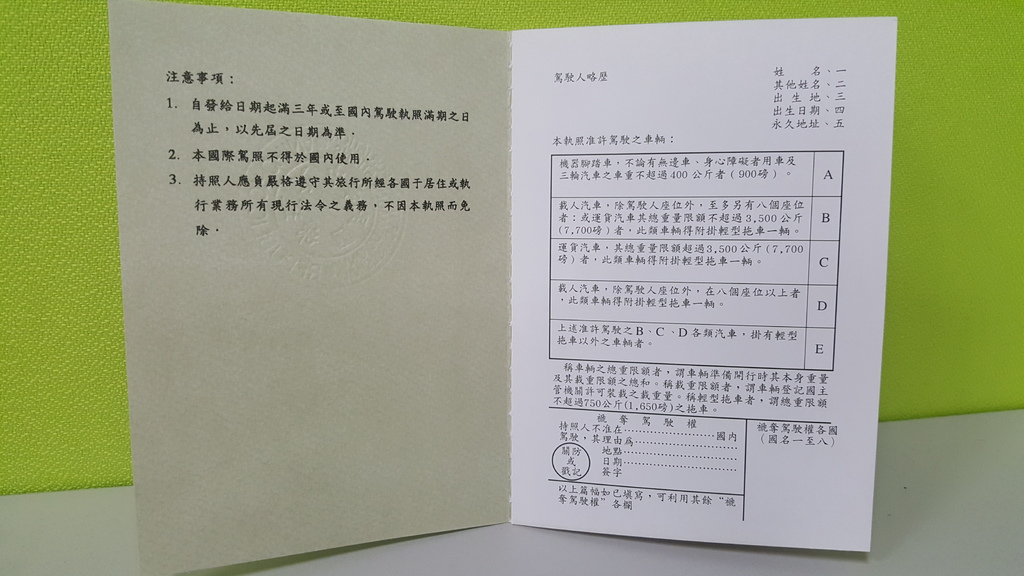 注意事項：
1. 自發給日期起滿三年或至國內駕駛執照滿期之日
為止，以先屆之日期為準．
2. 本國際駕照不得於國內使用．
3. 持照人應負嚴格遵守其旅行所經各國于居住或執
行業務所有現行法令之義務，不因本執照而免
除．
駕駛人略歷
姓名、一
其他姓名、二
出生地、三
出生日期、四
永久地址、五
本執照准許駕駛之車輛：
機器腳踏車，不論有無邊車、身心障礙者用車及
三輪汽車之車重不超過400公斤者（900磅）。
A
載人汽車，除駕駛人座位外，至多另有八個座位
者；或運貨汽車其總重量限額不超過3,500公斤
(7,700磅）者，此類車輛得附掛輕型拖車一輛。
B
運貨汽車，其總重量限額超過3,500公斤（7,700
磅）者，此類車輛得附掛輕型拖車一輛。
C
載人汽車，除駕駛人座位外，在八個座位以上者
，此類車輛得附掛輕型拖車一輛。
D
上述准許駕駛之B、C、D各類汽車，掛有輕型
拖車以外之車輛者。
E
稱車輛之總重限額者，謂車輛準備開行時其本身重量
及其載重限額之總和。稱載重限額者，謂車輛登記國主
管機關許可裝載之載重量。稱輕型拖車者，謂總重限額
不超過750公斤(1,650磅)之拖車。
褫奪駕駛權
持照人不准在……………………國內
駕駛，其理由為……………………
關防
或
戳記
地點……………………
日期……………………
簽字
以上篇幅如已填寫，可利用其餘“褫
奪駕駛權”各欄
褫奪駕駛權各國
（國名一至八）